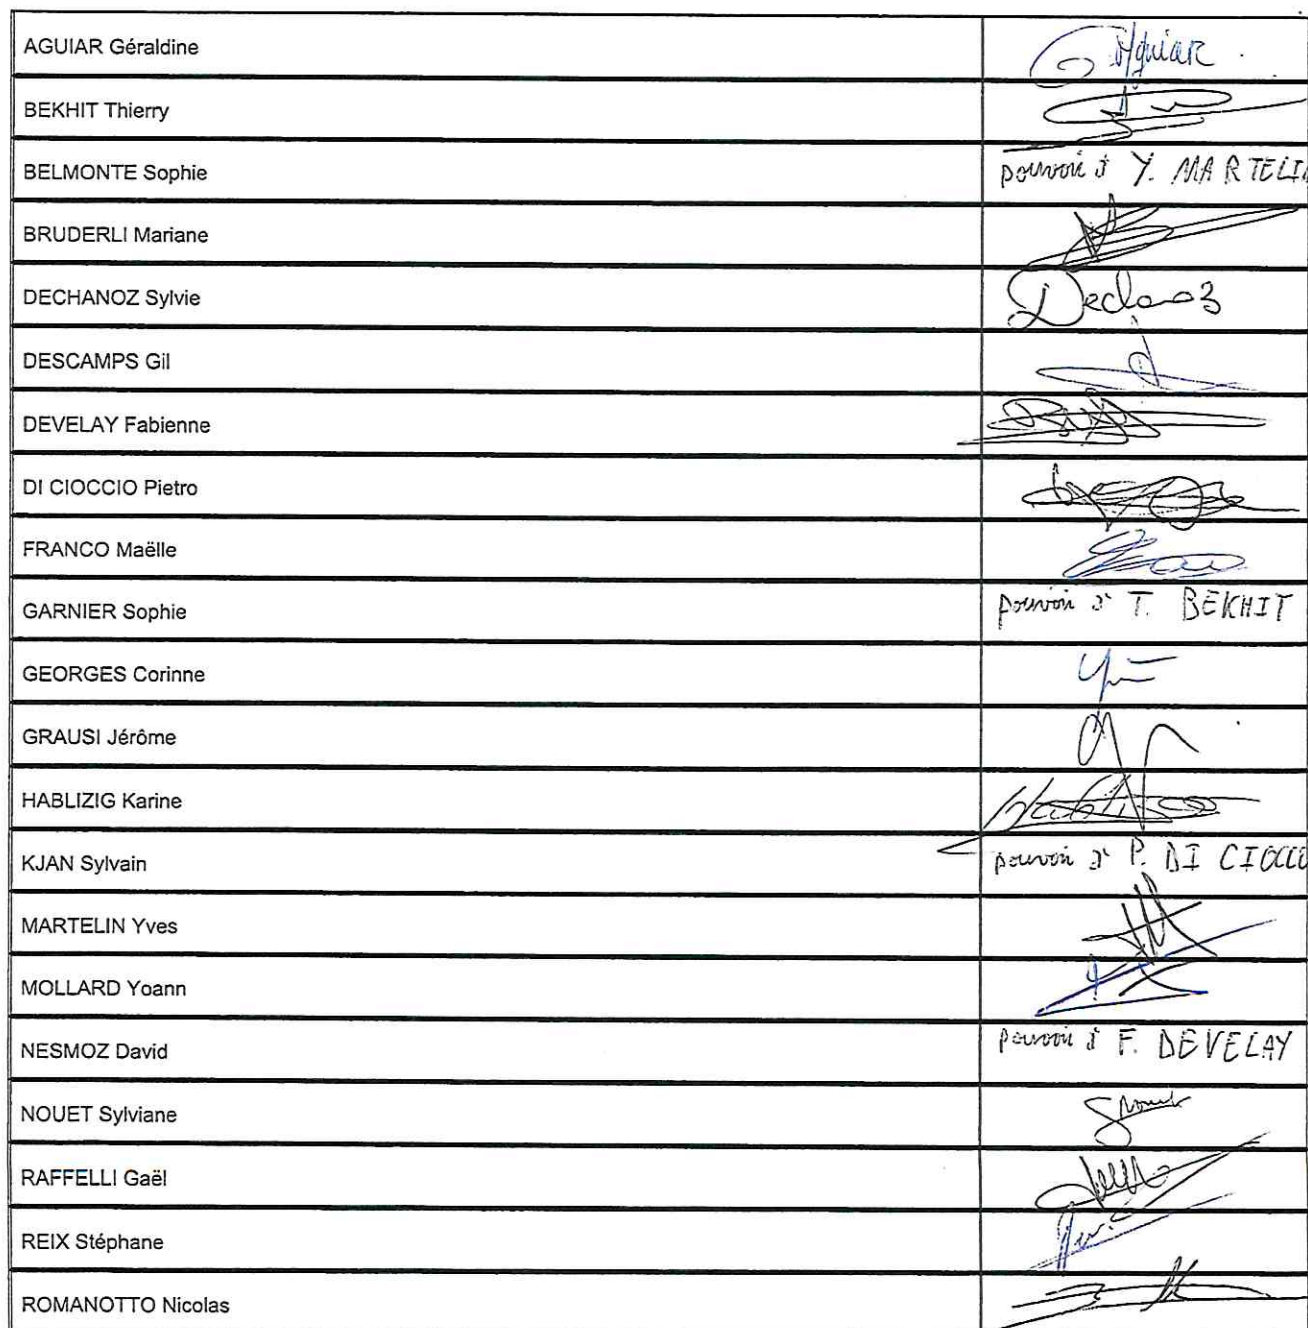 AGUIAR Géraldine
Aguiar
BEKHIT Thierry
BELMONTE Sophie
pouvoir à Y. MARTELIN
BRUDERLI Mariane
DECHANOZ Sylvie
Dechanoz
DESCAMPS Gil
DEVELAY Fabienne
DI CIOCCIO Pietro
FRANCO Maëlle
GARNIER Sophie
pouvoir à T. BEKHIT
GEORGES Corinne
GRAUSI Jérôme
HABLIZIG Karine
KJAN Sylvain
pouvoir à P. DI CIOCCIO
MARTELIN Yves
MOLLARD Yoann
NESMOZ David
pouvoir à F. DEVELAY
NOUET Sylviane
RAFFELLI Gaël
REIX Stéphane
ROMANOTTO Nicolas